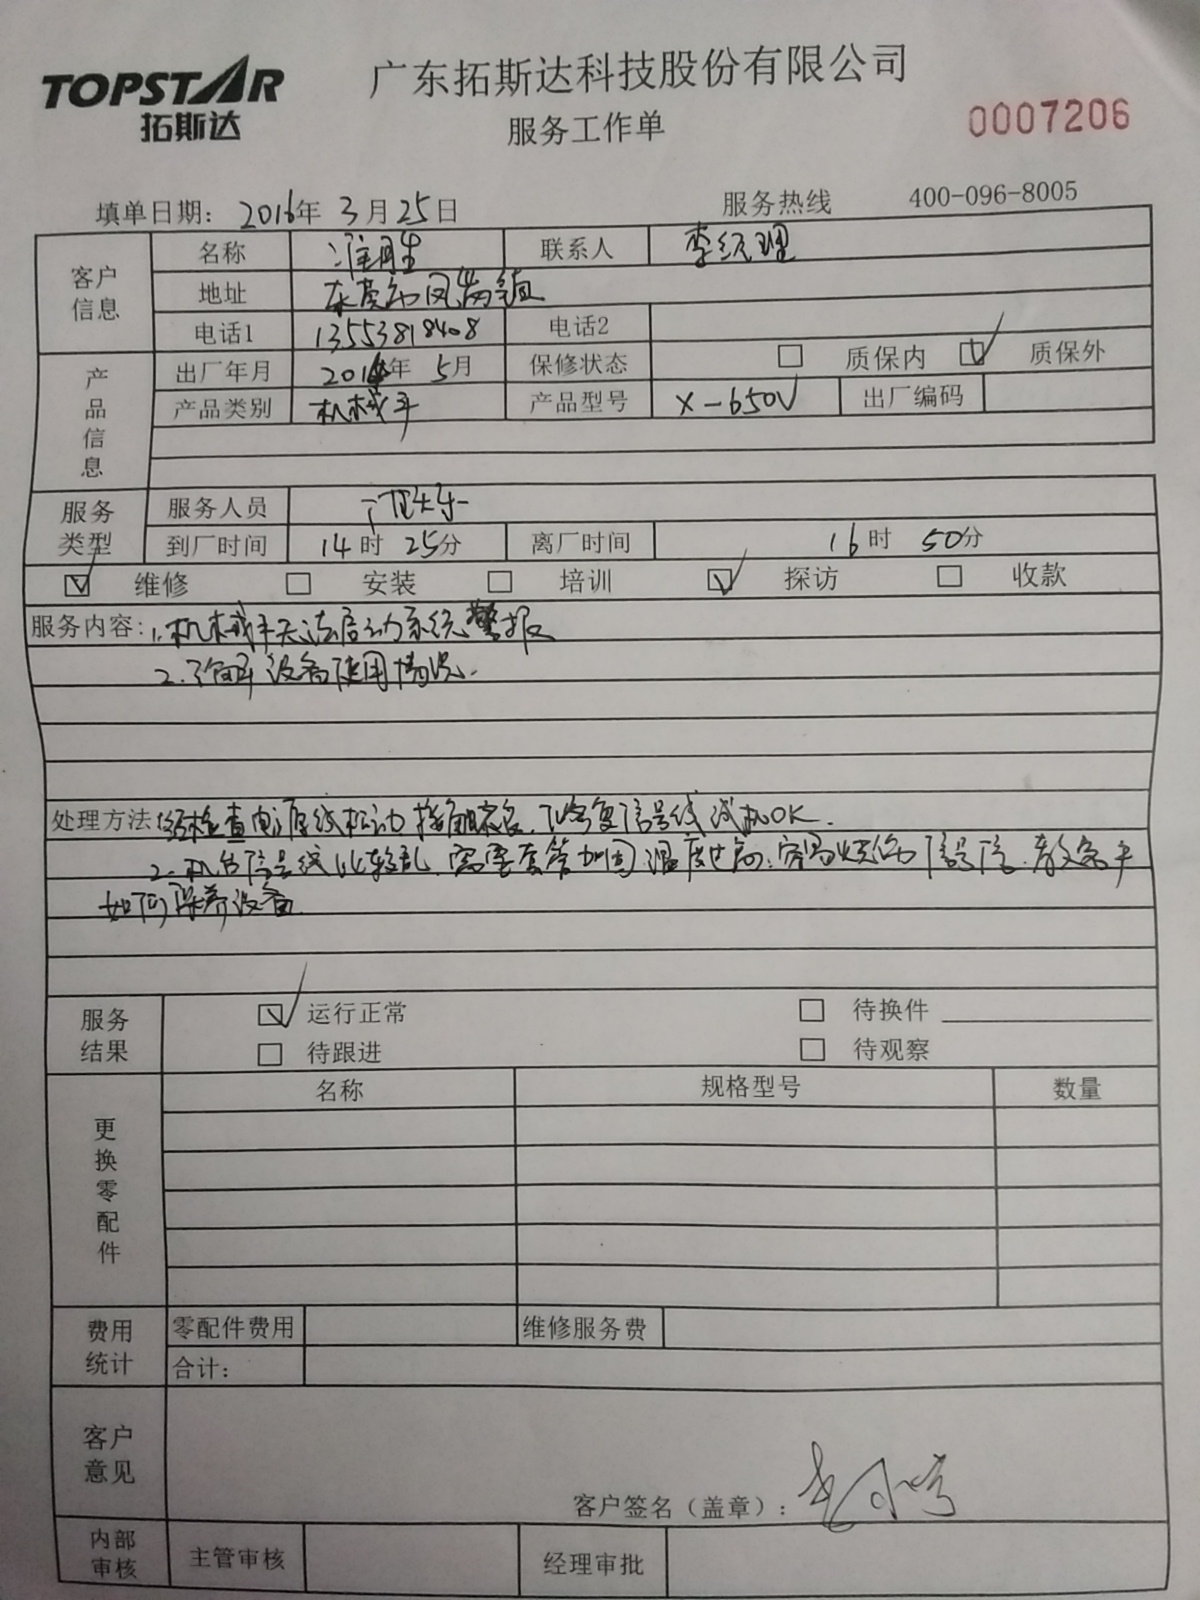 TOPSTAR
拓斯达
广东拓斯达科技股份有限公司
服务工作单
0007206
填单日期： 2016年 3月25日
服务热线 400-096-8005
客户信息
名称 准胜 联系人 李经理
地址 东莞市凤岗镇
电话1 13553818408 电话2
产品信息
出厂年月 2014年 5月 保修状态 质保内 质保外
产品类别 机械手 产品型号 X-650V 出厂编码
服务类型
服务人员
到厂时间 14时 25分 离厂时间 16时 50分
维修 安装 培训 探访 收款
服务内容：1.机械手无法启动系统警报
2.了解设备使用情况.
处理方法：经检查电源线松动 接触不良, 恢复信号线试机OK.
2.机台信号线比较乱, 需要套管加固 温度过高,容易烧伤 教客户
如何保养设备
服务结果
运行正常 待换件
待跟进 待观察
更换零配件
名称 规格型号 数量
费用统计
零配件费用 维修服务费
合计：
客户意见
客户签名（盖章）：
内部审核
主管审核 经理审批